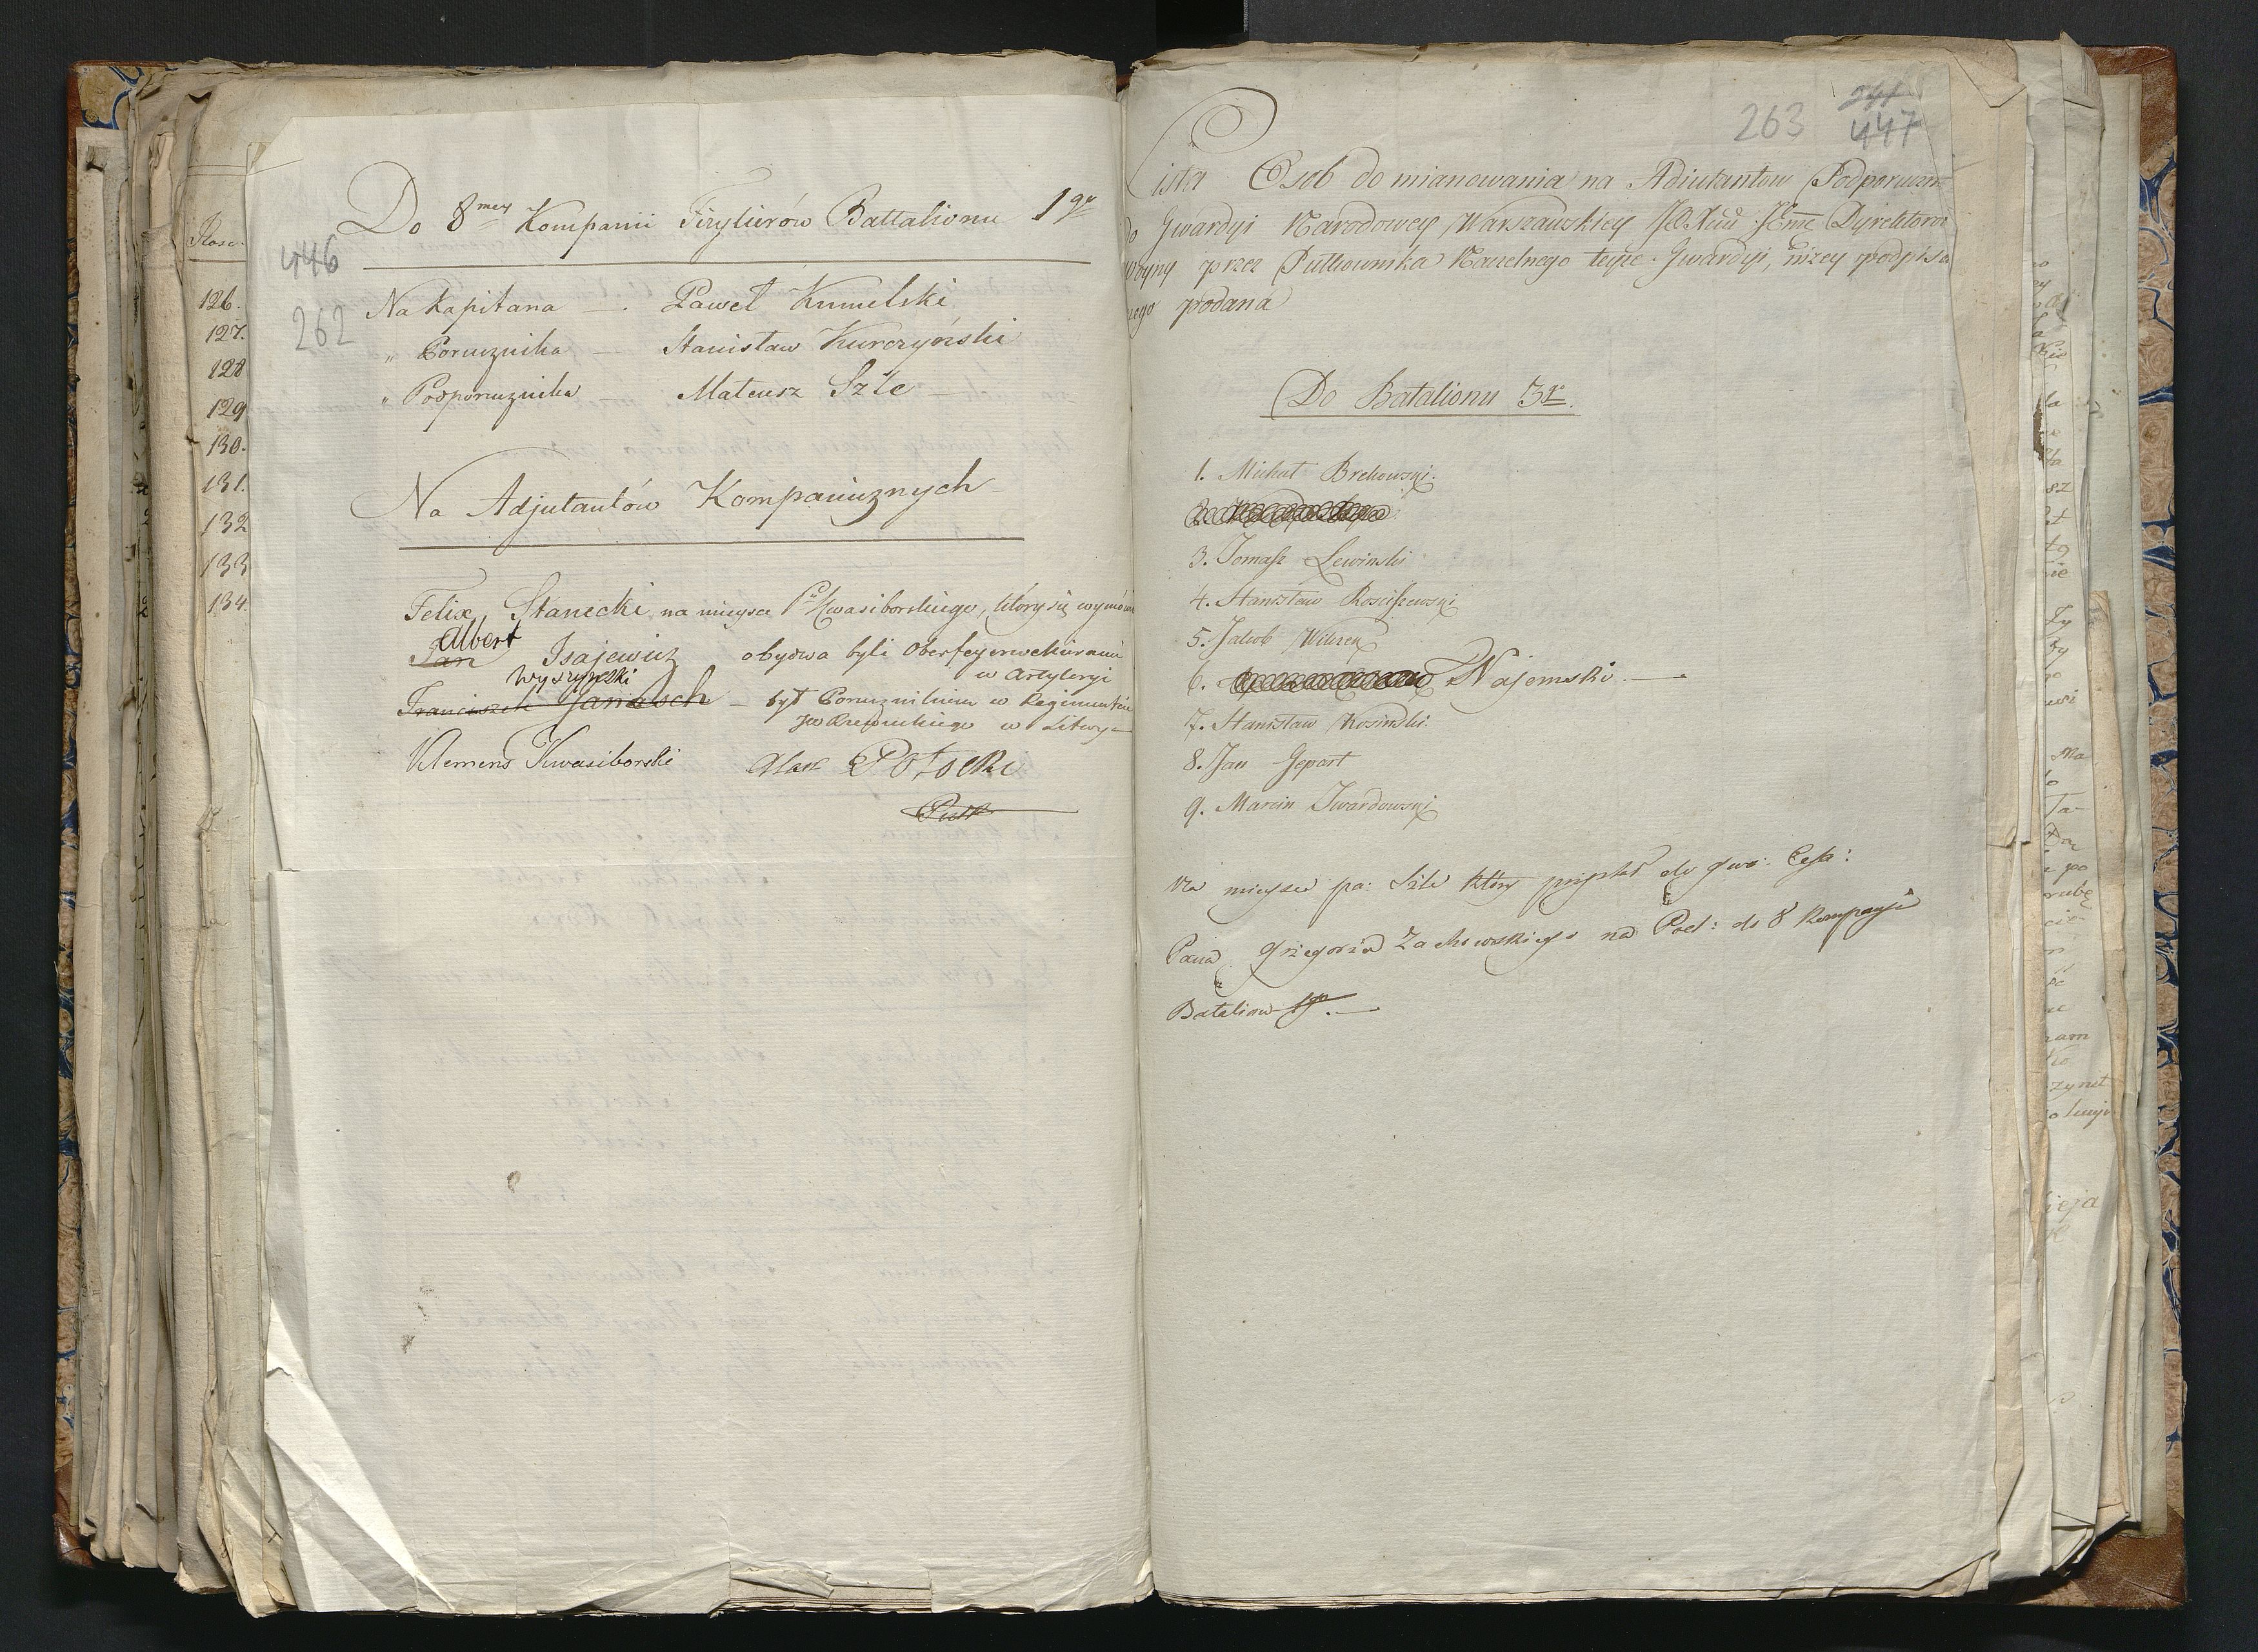 446
262
Do 8mey Kompanii Fizylierów Battalionu 1go
Na Kapitana — Paweł Kumelski
" Porucznika — Stanisław Kurczyński
" Podporucznika — Mateusz Szle —
Na Adjutantów Kompanicznych
Felix Stanecki na mieysce Pa Kwasiborskiego, który się wymówił
Albert
Jan Isajewicz obydwa byli Oberfeyerwekierami
w Artyleryi
Wyszyński
Franciszek Janisch — był Porucznikiem w Regimencie
w Litwy —
Klemens Kwasiborski Alex Potocki
Pułk
126.
127.
128
129
130.
131.
132
133
134.
263 447
Lista Osob do mianowania na Adiutantow Podporuczn
do Gwardyi Narodowey Warszawskiey Dyrektorowi
Woyny przez Pułkownika Naczelnego teyże Gwardyi, niżey podpisa
nego podana
Do Batalionu 3go.
1. Michał Brchowski.
2.
3. Tomasz Lewinski
4. Stanisław Rosciszewski
5. Jakob Wilczek
6. Najemski —
7. Stanisław Kosinski
8. Jan Gepart
9. Marcin Twardowski
Na mieysce pa: Szle który przystał do gwa: Cesa:
Pana Grzegorza Zachowskiego na Pod: do 8 Kompanji
Batalionu 1go. —